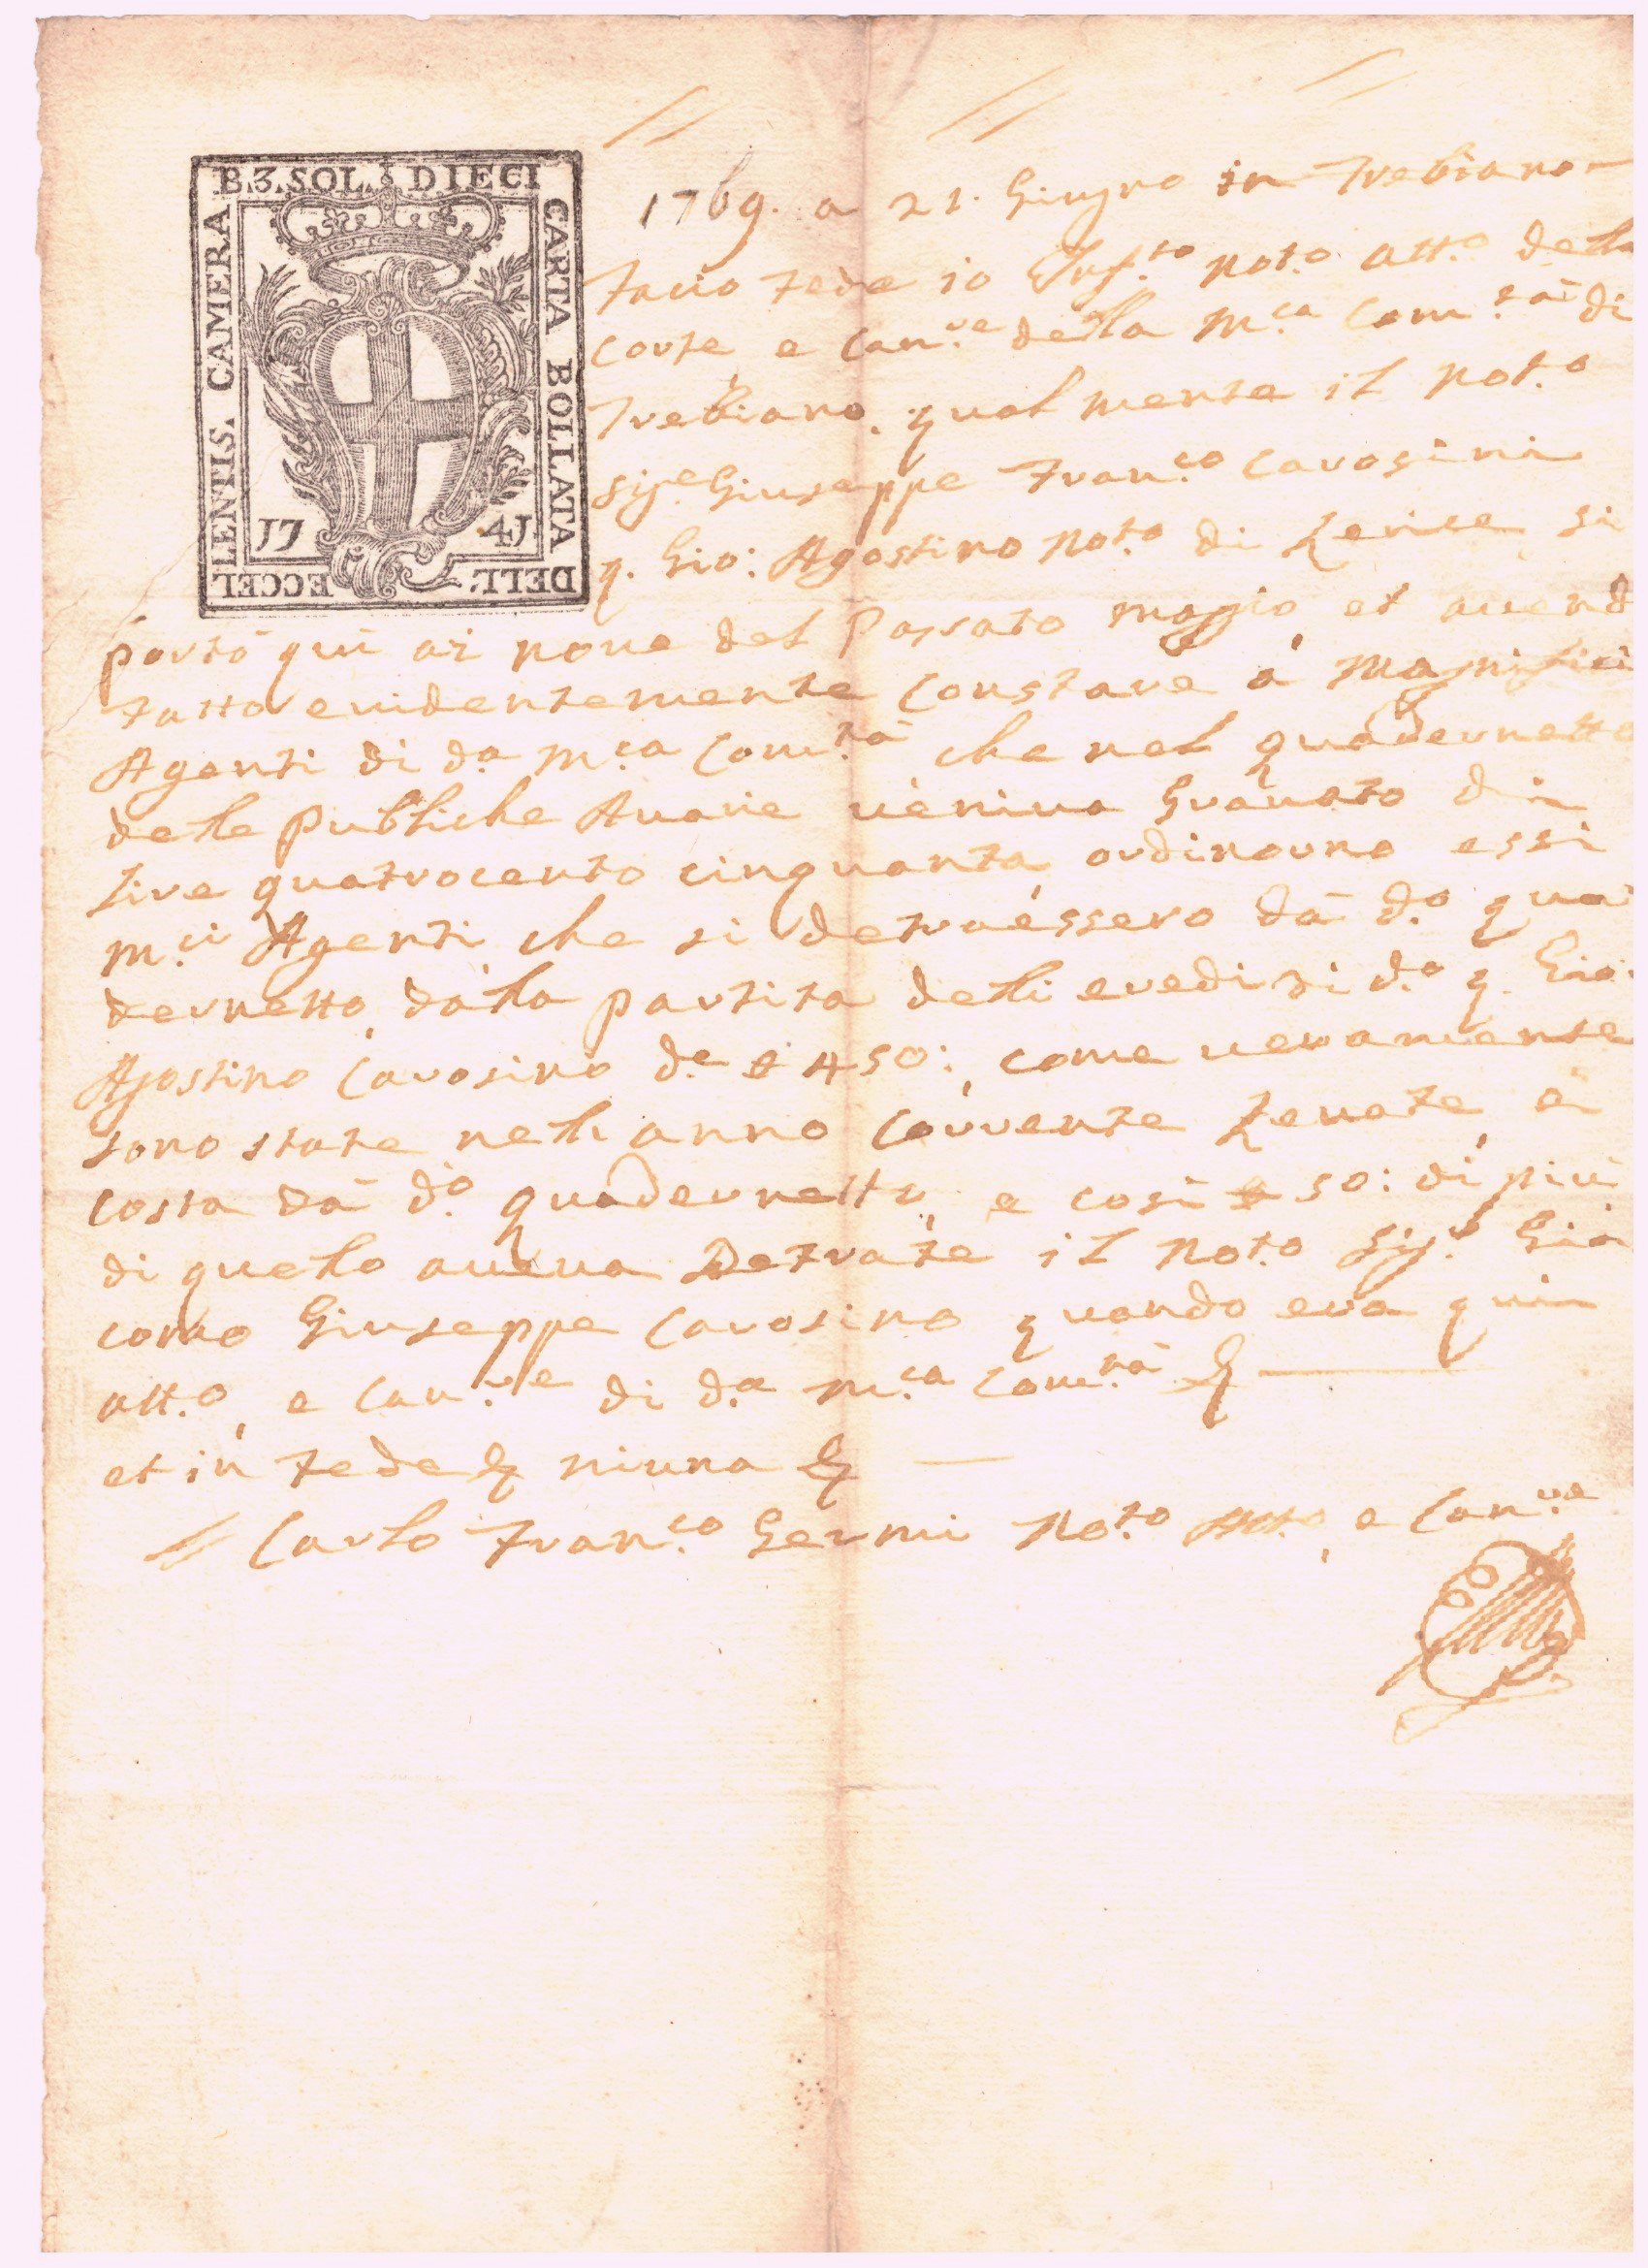 B.3. SOL. DIECI
CARTA BOLLATA
DELL' ECCEL
LENTIS. CAMERA
17 41
1769. a 21. Giugno in Trebiano
Facio Fede io Inf.to Not.o Att.o della
Corte, e Can.re della M.ca Com.tà di
Trebiano, qualmente il Not.o
Sig.e Giuseppe Fran.co Carosini
q. Gio: Agostino Not.o di Lerice, si
portò qui ai nove del Passato Magio et avend
fatto evidentemente Constare à Magnifici
Agenti di d.a M.ca Com.tà che nel quadernetto
delle Publiche Avarie veniva Gravato di
Lire quatrocento cinquanta ordinorno essi
M.ci Agenti che si detraessero dà d.o qua
dernetto, dalla partita delli eredi di d.o q. Gio:
Agostino Carosino d.e £ 450: come veramente
sono state nell anno Corrente Levate à
costa dà d.o quadernetto, e così £ 50: di più
di quello aveva Detrate il Not.o Sig.r Gia
como Giuseppe Carosino quando era qui
Att.o, e Can.re di d.a M.ca Com.tà &
et in fede & niuna &
Carlo Fran.co Germi Not.o Att.o, e Can.re